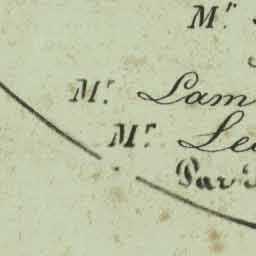 Mr.
Mr. Lam
Mr. Le
Par